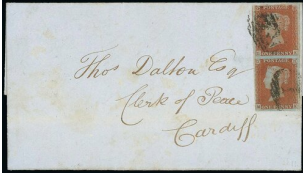 POSTAGE
Thos Dalton Esq
Clerk of Peace
Cardiff